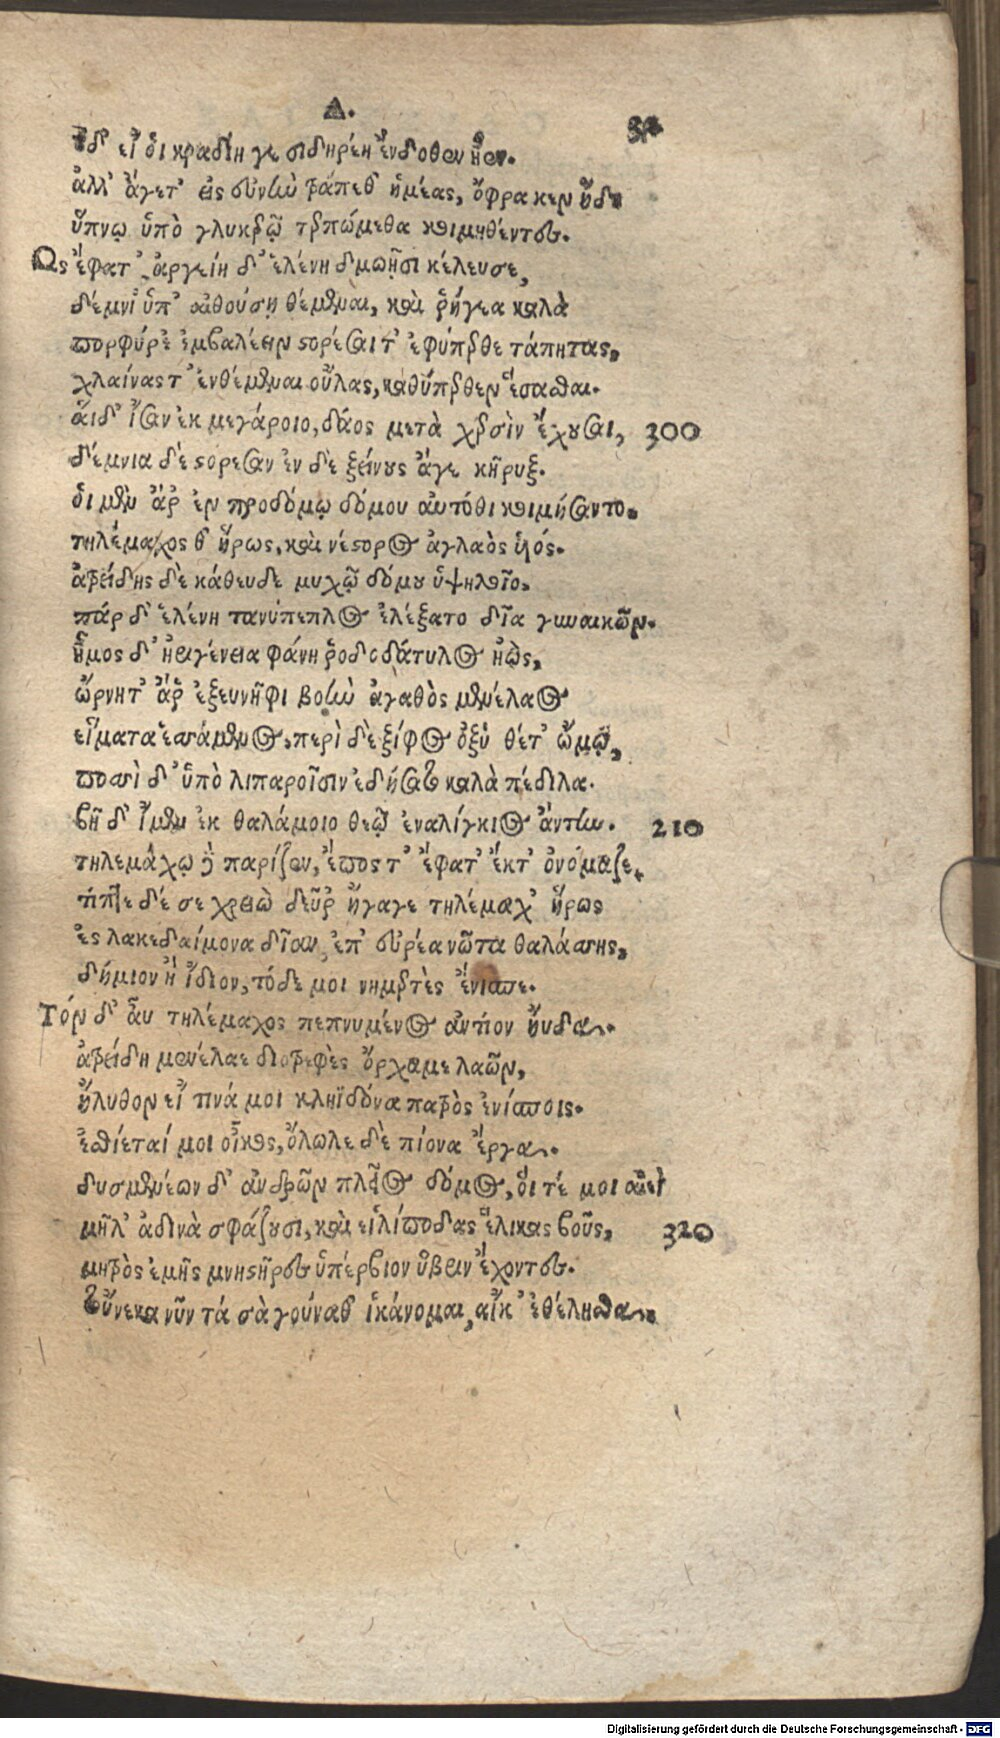 Δ.
οὐδ' εἴ οἱ κραδίη γε σιδηρέη ἔνδοθεν ἦεν.
ἀλλ' ἄγετ' εἰς εὐνὴν τράπεθ' ἡμέας, ὄφρα κεν ἤδη
ὕπνῳ ὑπὸ γλυκερῷ τερπώμεθα κοιμηθέντες.
Ως ἔφατ' ἀργείη δ' ἑλένη δμωῇσι κέλευσε,
δέμνι' ὑπ' αἰθούσῃ θέμεναι, καὶ ῥήγεα καλὰ
πορφύρε' ἐμβαλέειν στορέσαι τ' ἐφύπερθε τάπητας,
χλαίνας τ' ἐνθέμεναι οὔλας, καθύπερθεν ἕσασθαι.
αἱ δ' ἴσαν ἐκ μεγάροιο, δάος μετὰ χερσὶν ἔχουσαι, 300
δέμνια δὲ στορεσαν ἐν δὲ ξείνους ἄγε κῆρυξ.
οἱ μὲν ἄρ' ἐν προδόμῳ δόμου αὐτόθι κοιμήσαντο.
τηλέμαχος θ' ἥρως, καὶ νέστορος ἀγλαὸς υἱός.
ἀτρείδης δὲ κάθευδε μυχῷ δόμου ὑψηλοῖο.
πὰρ δ' ἑλένη τανύπεπλος ἐλέξατο δῖα γυναικῶν.
ἦμος δ' ἠριγένεια φάνη ῥοδοδάκτυλος ἠὼς,
ὤρνητ' ἄρ' ἐξευνῆφι βοὴν ἀγαθὸς μενέλαος
εἵματα ἑσσάμενος, περὶ δὲ ξίφος ὀξὺ θέτ' ὤμῳ,
ποσσὶ δ' ὑπὸ λιπαροῖσιν ἐδήσατο καλὰ πέδιλα.
βῆ δ' ἴμεν ἐκ θαλάμοιο θεῷ ἐναλίγκιος ἄντην. 210
τηλεμάχῳ δὲ παρίζεν, ἔπος τ' ἔφατ' ἔκτ' ὀνόμαζε,
τίπτε δέ σε χρειὼ δεῦρ' ἤγαγε τηλέμαχ' ἥρως
ἐς λακεδαίμονα δῖαν, ἐπ' εὐρέα νῶτα θαλάσσης,
δήμιον ἢ ἴδιον, τόδε μοι νημερτὲς ἔνισπε.
Τὸν δ' αὖ τηλέμαχος πεπνυμένος ἀντίον ηὔδα.
ἀτρείδη μενέλαε διοτρεφὲς ὄρχαμε λαῶν,
ἤλυθον εἴ τινά μοι κληϊδόνα πατρὸς ἐνίσποις.
ἐσθίεταί μοι οἶκος, ὄλωλε δὲ πίονα ἔργα.
δυσμενέων δ' ἀνδρῶν πλεῖος δόμος, οἵ τέ μοι αἰεὶ
μῆλ' ἀδινὰ σφάζουσι, καὶ εἰλίποδας ἕλικας βοῦς, 320
μητρὸς ἐμῆς μνηστῆρες ὑπέρβιον ὕβριν ἔχοντες.
τοὔνεκα νῦν τά σὰ γούναθ' ἱκάνομαι, αἴκ' ἐθέλησθα.
Digitalisierung gefördert durch die Deutsche Forschungsgemeinschaft - DFG